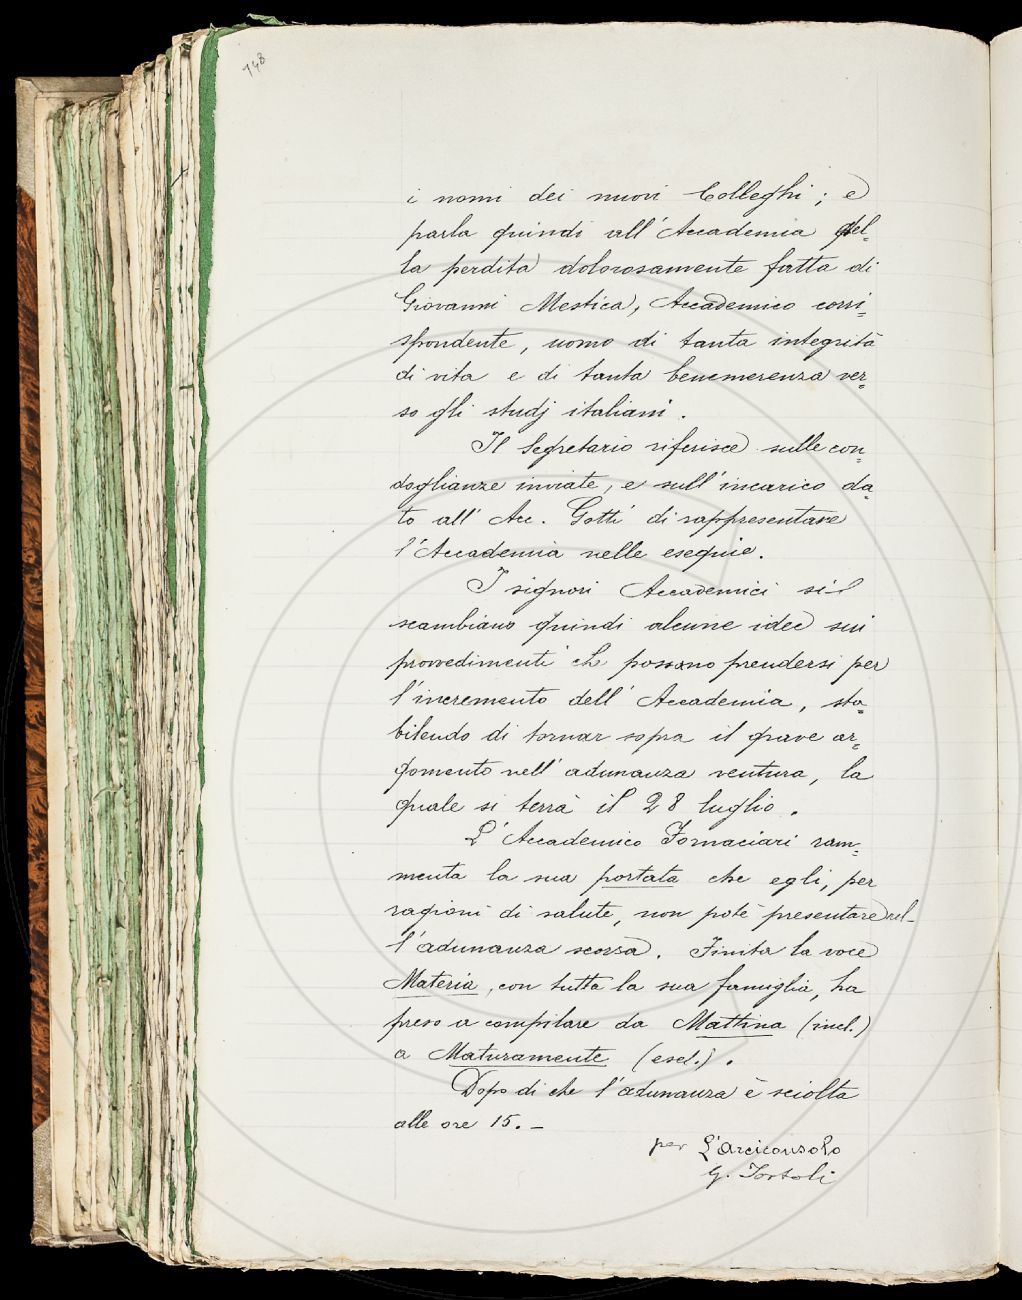 748
i nomi dei nuovi Colleghi; e
parla quindi all'Accademia del=
la perdita dolorosamente fatta di
Giovanni Mestica, Accademico corri=
spondente, uomo di tanta integrità
di vita e di tanta benemerenza ver=
so gli studj italiani.
Il Segretario riferisce sulle con=
doglianze inviate, e sull'incarico da=
to all'Acc. Gotti di rappresentare
l'Accademia nelle esequie.
I signori Accademici si
scambiano quindi alcune idee sui
provvedimenti che possono prendersi per
l'incremento dell'Accademia, sta=
bilendo di tornar sopra il grave ar=
gomento nell'adunanza ventura, la
quale si terrà il 28 luglio.
L'Accademico Fornaciari ram=
menta la sua portata che egli, per
ragioni di salute, non potè presentare nel-
l'adunanza scorsa. Finita la voce
Materia, con tutta la sua famiglia, ha
preso a compilare da Mattina (incl.)
a Maturamente (escl.).
Dopo di che l'adunanza è sciolta
alle ore 15. –
per L'Arciconsolo
G. Tortoli